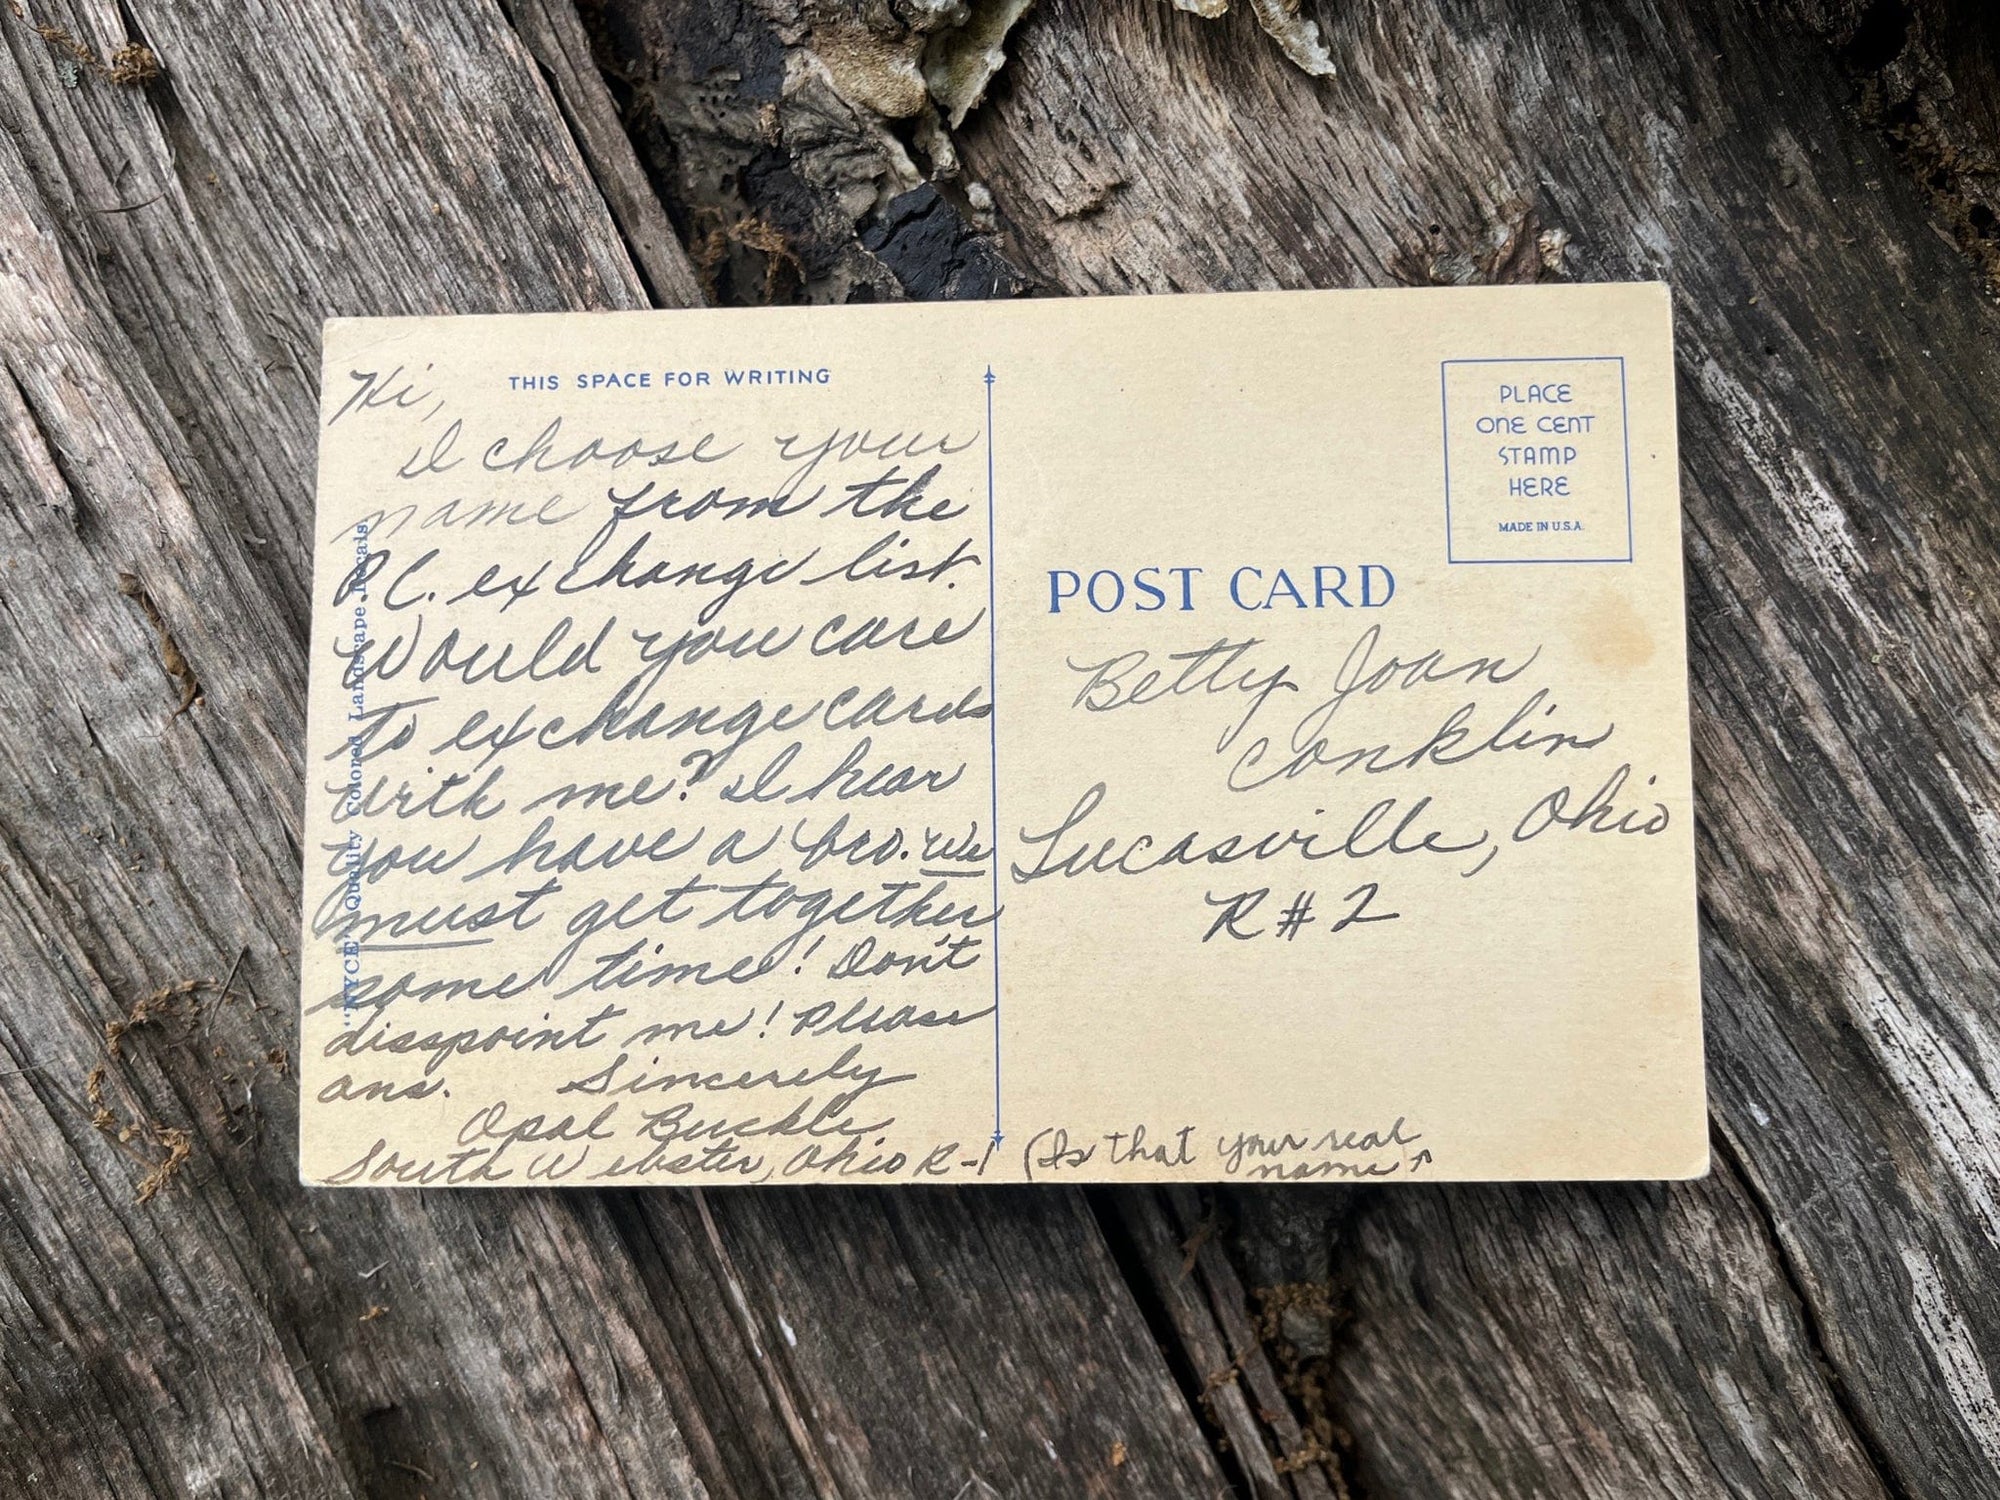 THIS SPACE FOR WRITING
Hi,
I choose your
name from the
P.C. exchange list.
Would you care
to exchange cards
with me? I hear
you have a bro. We
must get together
some time! Don't
disspoint me! Please
ans. Sincerely
Opal Buckle
South Webster, Ohio R-1
"NYCE" Quality Colored Landscape Locals
PLACE
ONE CENT
STAMP
HERE
MADE IN U.S.A.
POST CARD
Betty Joan
Conklin
Lucasville, Ohio
R # 2
(Is that your real
name?